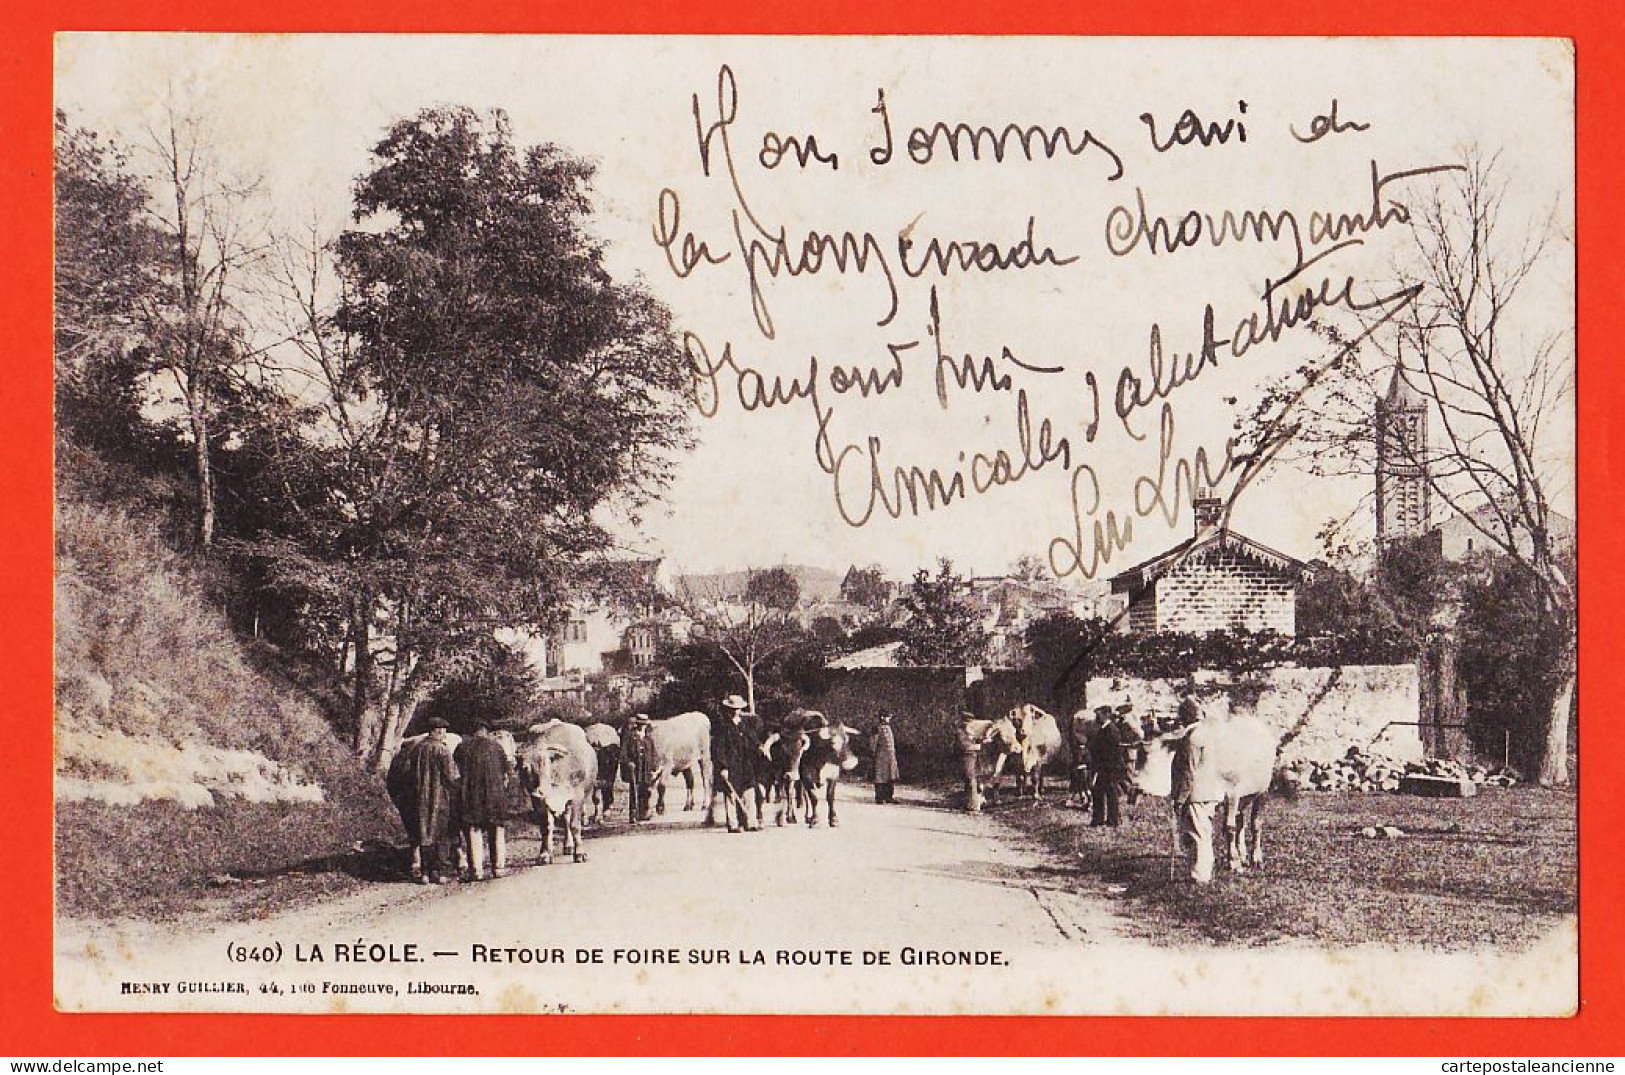 Nous sommes ravi de
la promenade charmante
d'aujourd'hui
Amicales salutations
(840) LA RÉOLE. — RETOUR DE FOIRE SUR LA ROUTE DE GIRONDE.
HENRY GUILLIER, 44, rue Fonneuve, Libourne.
cartepostaleancienne